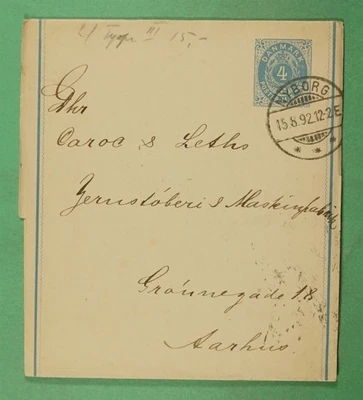 21 Type III 15,-
DANMARK
4
NYBORG
15.8.92.12-2E
Dhr
Caroc & Leths
Jernstöberi & Maskinfabrik
Grönnegade 18
Aarhus